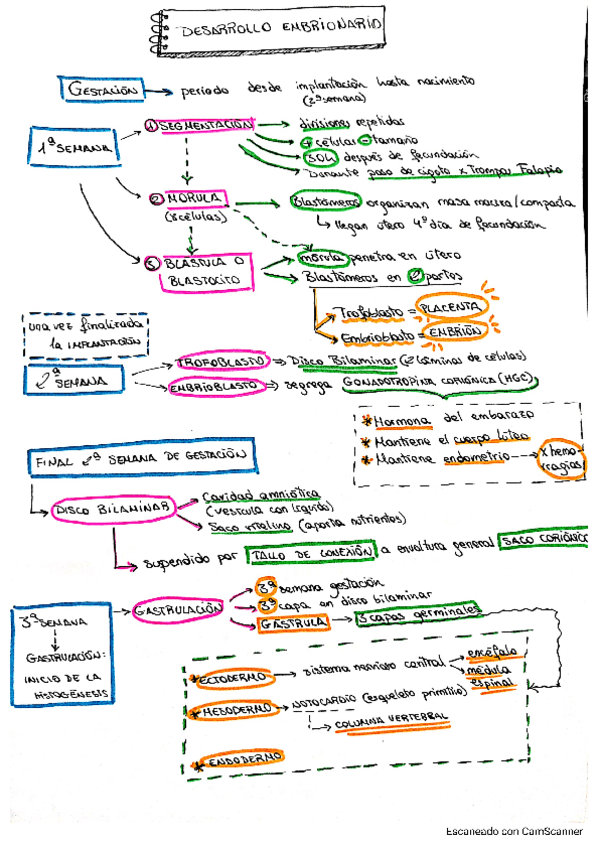 DESARROLLO EMBRIONARIO
GESTACIÓN → periodo desde implantación hasta nacimiento
(2ª semana)
1ª SEMANA
① SEGMENTACIÓN → divisiones repetidas
+ células - tamaño
30h después de fecundación
Durante paso de cigoto x Trompas Falopio
② MÓRULA → Blastómeros organizan masa maciza/compacta
(8 células)
↳ llegan útero 4º día de fecundación
③ BLÁSTULA O BLASTOCITO
mórula penetra en útero
Blastómeros en 2 partes
Trofoblasto = PLACENTA
Embrioblasto = EMBRIÓN
una vez finalizada
la IMPLANTACIÓN
2ª SEMANA
TROFOBLASTO → Disco Bilaminar (2 láminas de células)
EMBRIOBLASTO → segrega GONADOTROPINA CORIÓNICA (HGC)
* Hormona del embarazo
* Mantiene el cuerpo lúteo
* Mantiene endometrio → x hemorragias
FINAL 2ª SEMANA DE GESTACIÓN
DISCO BILAMINAR
Cavidad amniótica
(vesícula con líquido)
Saco vitelino (aporta nutrientes)
suspendido por TALLO DE CONEXIÓN a envoltura general SACO CORIÓNICO
3ª SEMANA
↓
GASTRULACIÓN:
INICIO DE LA
HISTOGÉNESIS
GASTRULACIÓN
3ª semana gestación
3ª capa en disco bilaminar
GÁSTRULA → 3 capas germinales
* ECTODERMO → sistema nervioso central
encéfalo
médula espinal
* MESODERMO → NOTOCARDIO (esqueleto primitivo)
→ COLUMNA VERTEBRAL
* ENDODERMO
Escaneado con CamScanner